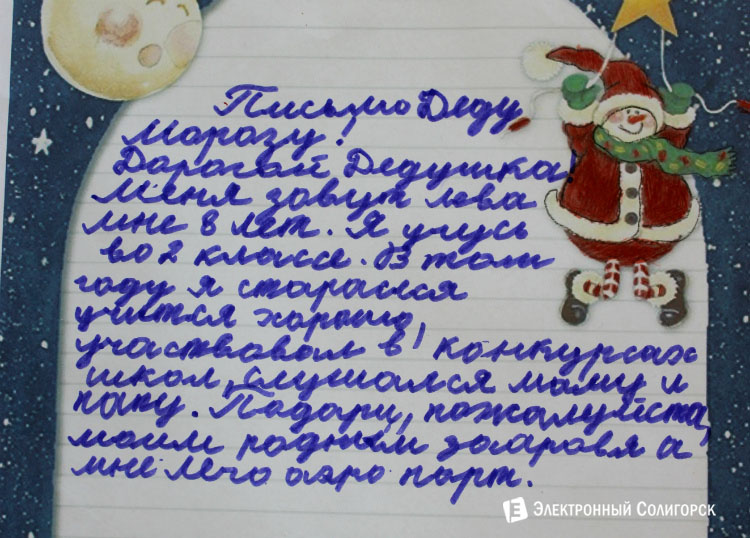 Письмо Деду
Морозу.
Дорогой Дедушка!
Меня зовут Лёва
мне 8 лет. Я учусь
во 2 классе. В этом
году я старался
учится хорошо,
участвовал в конкурсах
школ, слушался маму и
папу. Подари, пожалуйста,
моим родным здаровя а
мне лего аэро порт.
Электронный Солигорск